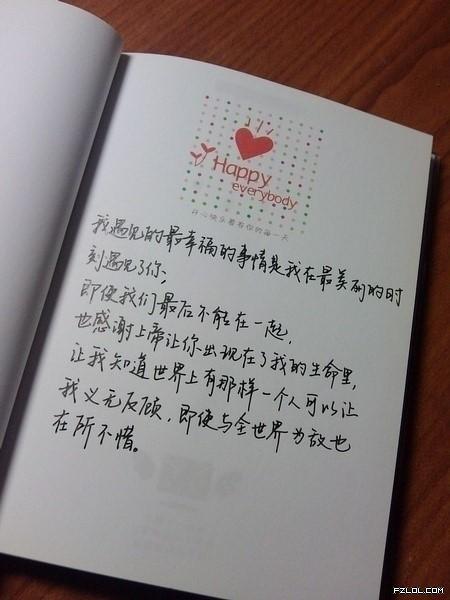 Happy
everybody
开心快乐着看你的每一天
我遇见的最幸福的事情是我在最美丽的时
刻遇见了你;
即使我们最后不能在一起,
也感谢上帝让你出现在了我的生命里,
让我知道世界上有那样一个人可以让
我义无反顾,即使与全世界为敌也
在所不惜。
FZLOL.COM